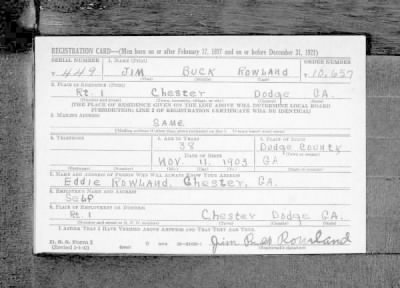 REGISTRATION CARD—(Men born on or after February 17, 1897 and on or before December 31, 1921)
SERIAL NUMBER 1. NAME (Print) ORDER NUMBER
T 449 JIM BUCK ROWLAND 10,657
(First) (Middle) (Last)
2. PLACE OF RESIDENCE (Print)
Rt. 1 Chester Dodge GA.
(Number and street) (Town, township, village, or city) (County) (State)
[THE PLACE OF RESIDENCE GIVEN ON THE LINE ABOVE WILL DETERMINE LOCAL BOARD
JURISDICTION; LINE 2 OF REGISTRATION CERTIFICATE WILL BE IDENTICAL]
3. MAILING ADDRESS
SAME
4. TELEPHONE 5. AGE IN YEARS 6. PLACE OF BIRTH
38 Dodge County
DATE OF BIRTH (Town or county)
Nov. 11 1903 GA
(Exchange) (Number) (Mo.) (Day) (Yr.) (State or country)
7. NAME AND ADDRESS OF PERSON WHO WILL ALWAYS KNOW YOUR ADDRESS
Eddie Rowland, Chester, GA.
8. EMPLOYER'S NAME AND ADDRESS
Self
9. PLACE OF EMPLOYMENT OR BUSINESS
Rt. 1 Chester Dodge GA.
(Number and street or R. F. D. number) (Town) (County) (State)
I AFFIRM THAT I HAVE VERIFIED ABOVE ANSWERS AND THAT THEY ARE TRUE.
D. S. S. Form 1
(Revised 1-1-42) (over) Jim Rowland